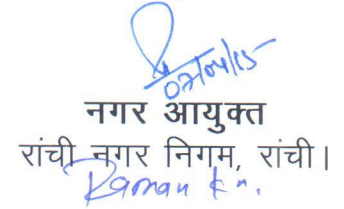 07/04/15
नगर आयुक्त
रांची नगर निगम, रांची।
Raman kr.